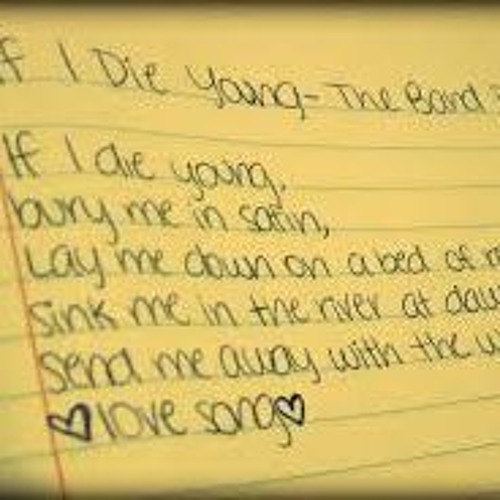 If I Die Young - The Band
If I die young,
bury me in satin,
Lay me down on a bed of
Sink me in the river at
Send me away with the
♡love song♡